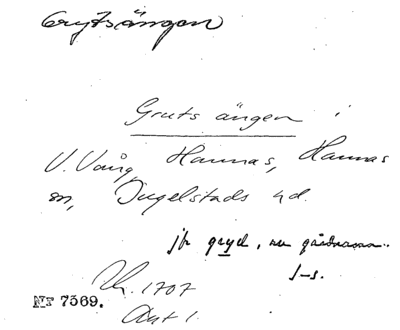 Grytsängen
Gruts ängen i
V. Vång, Hannas, Hannas
sn, Ingelstads hd.
jfr gryd, nu gårdnamn.
J-s.
Lh. 1707
Akt 1.
Nr 7569.